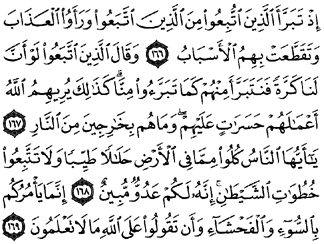 إِذْ تَبَرَّأَ ٱلَّذِينَ ٱتُّبِعُوا۟ مِنَ ٱلَّذِينَ ٱتَّبَعُوا۟ وَرَأَوُا۟ ٱلْعَذَابَ
وَتَقَطَّعَتْ بِهِمُ ٱلْأَسْبَابُ ١٦٦ وَقَالَ ٱلَّذِينَ ٱتَّبَعُوا۟ لَوْ أَنَّ
لَنَا كَرَّةً فَنَتَبَرَّأَ مِنْهُمْ كَمَا تَبَرَّءُوا۟ مِنَّا ۗ كَذَٰلِكَ يُرِيهِمُ ٱللَّهُ
أَعْمَـٰلَهُمْ حَسَرَٰتٍ عَلَيْهِمْ ۖ وَمَا هُم بِخَـٰرِجِينَ مِنَ ٱلنَّارِ ١٦٧
يَـٰٓأَيُّهَا ٱلنَّاسُ كُلُوا۟ مِمَّا فِى ٱلْأَرْضِ حَلَـٰلًا طَيِّبًا وَلَا تَتَّبِعُوا۟
خُطُوَٰتِ ٱلشَّيْطَـٰنِ ۚ إِنَّهُۥ لَكُمْ عَدُوٌّ مُّبِينٌ ١٦٨ إِنَّمَا يَأْمُرُكُم
بِٱلسُّوٓءِ وَٱلْفَحْشَآءِ وَأَن تَقُولُوا۟ عَلَى ٱللَّهِ مَا لَا تَعْلَمُونَ ١٦٩